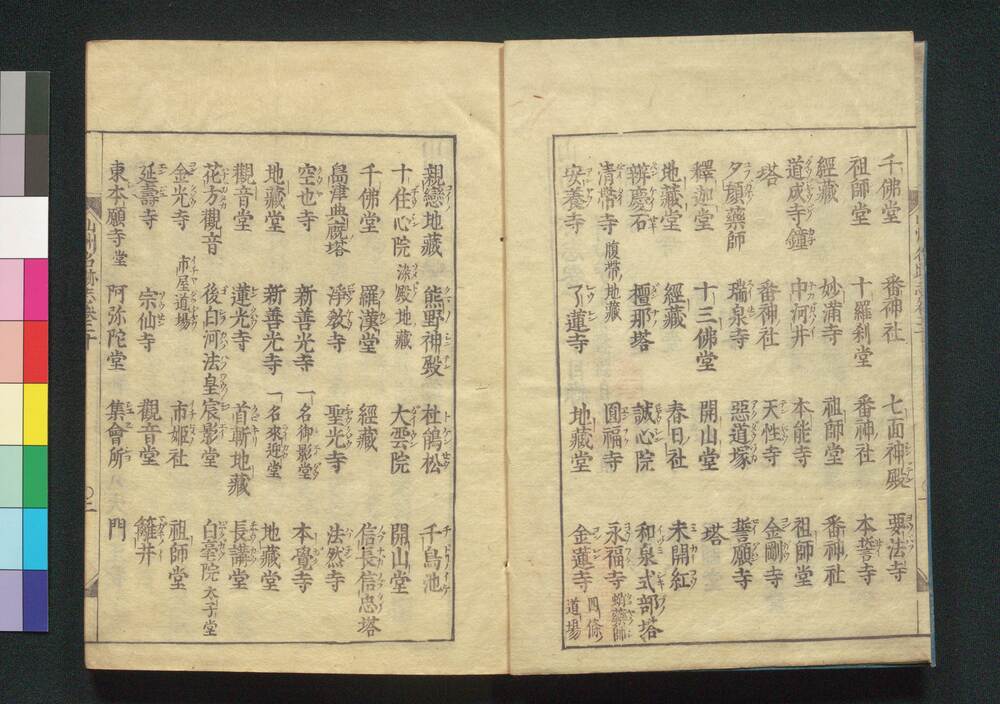 千佛堂 番神社 七面神殿 要法寺
祖師堂 十羅刹堂 番神社 本誓寺
經藏 妙滿寺 祖師堂 番神社
道成寺鐘 中河井 本能寺 祖師堂
塔 番神社 天性寺 金剛寺
夕顔藥師 瑞泉寺 惡道塚 誓願寺
釋迦堂 十三佛堂 開山堂 塔
地藏堂 經藏 春日社 未開紅
辨慶石 檀那塔 誠心院 和泉式部塔
清帶寺 腹帶地藏 圓福寺 永福寺 蛸藥師
安養寺 了蓮寺 地藏堂 金蓮寺 四條道場
親戀地藏 熊野神殿 杜鵑松 千鳥池
十住心院 染殿地藏 大雲院 開山堂
千佛堂 羅漢堂 經藏 信長信忠塔
島津典廐塔 淨教寺 聖光寺 法然寺
空也寺 新善光寺 一名御影堂 本覺寺
地藏堂 新善光寺 一名來迎堂 地藏堂
觀音堂 蓮光寺 首斬地藏 長講堂
花方觀音 後白河法皇宸影堂 白毫院 太子堂
金光寺 市屋道場 市姫社 祖師堂
延壽寺 宗仙寺 觀音堂 籬井
東本願寺堂 阿弥陀堂 集會所 門
山州名跡志卷二十 〇二